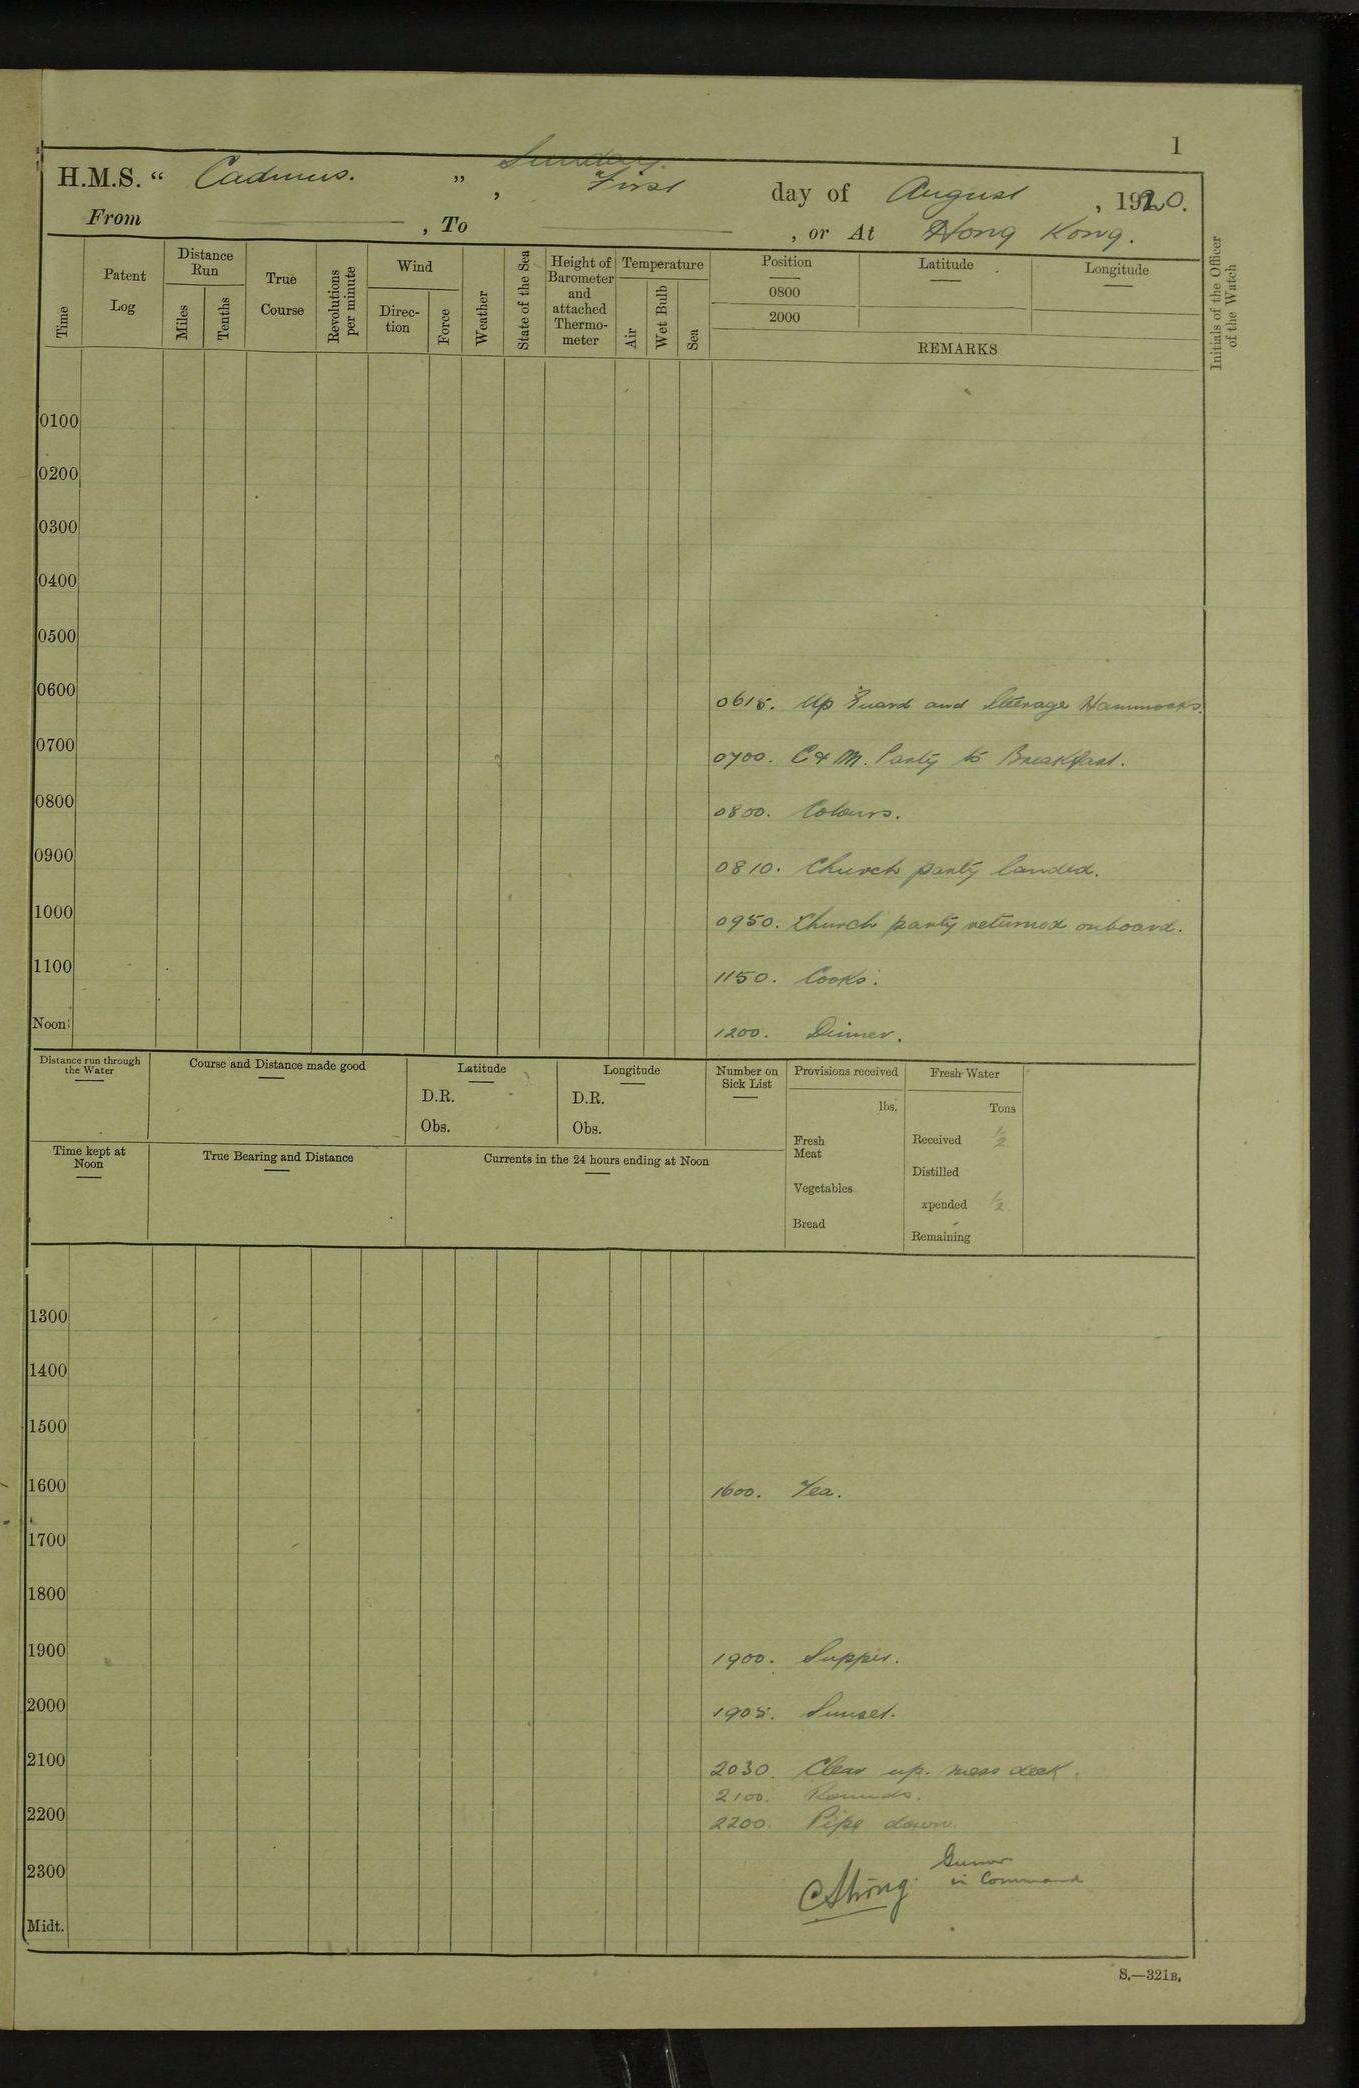 1
Sunday.
H.M.S. “ Cadmus. ” , First day of August , 1920.
From , To , or At Hong Kong.
Time
Patent Log
Distance Run
Miles
Tenths
True Course
Revolutions per minute
Wind
Direction
Force
Weather
State of the Sea
Height of Barometer and attached Thermometer
Temperature
Air
Wet Bulb
Sea
Position
Latitude
Longitude
0800
2000
REMARKS
Initials of the Officer of the Watch
0100
0200
0300
0400
0500
0600
0615. Up Guard and Steerage Hammocks.
0700
0700. C & M. Party to Breakfast.
0800
0800. Colours.
0900
0810. Church party landed.
1000
0950. Church party returned onboard.
1100
1150. Cooks.
Noon
1200. Dinner.
Distance run through the Water
Course and Distance made good
Latitude
D.R.
Obs.
Longitude
D.R.
Obs.
Number on Sick List
Provisions received
lbs.
Fresh Meat
Vegetables
Bread
Fresh Water
Tons
Received ½
Distilled
xpended ½
Remaining
Time kept at Noon
True Bearing and Distance
Currents in the 24 hours ending at Noon
1300
1400
1500
1600
1600. Tea.
1700
1800
1900
1900. Supper.
2000
1905. Sunset.
2100
2030. Clear up mess deck.
2100. Rounds.
2200
2200. Pipe down.
2300
C Strong. Gunner
in Command
Midt.
S.—321B.